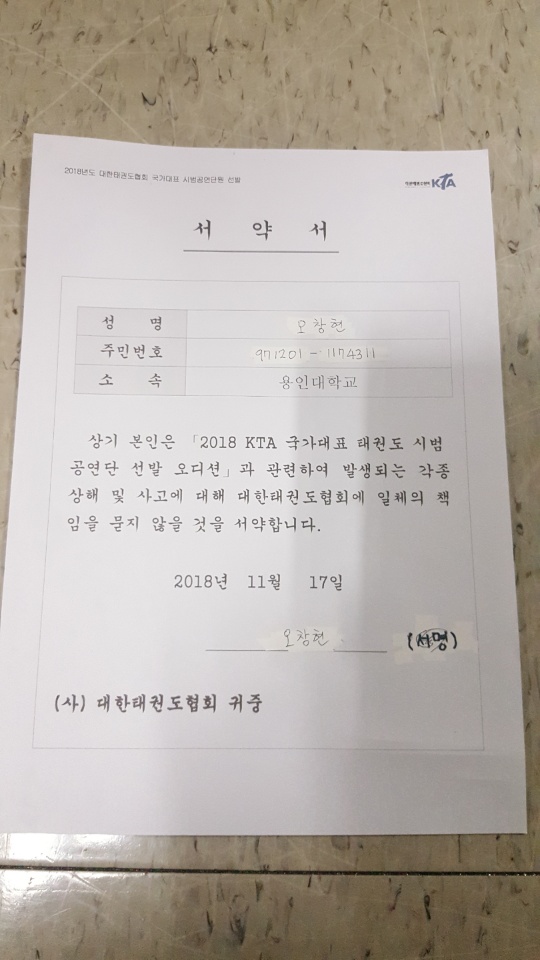 2018년도 대한태권도협회 국가대표 시범공연단원 선발
KTA
서 약 서
성 명 오창현
주민번호 971201-1174311
소 속 용인대학교
상기 본인은 「2018 KTA 국가대표 태권도 시범
공연단 선발 오디션」과 관련하여 발생되는 각종
상해 및 사고에 대해 대한태권도협회에 일체의 책
임을 묻지 않을 것을 서약합니다.
2018년 11월 17일
오창현 (서명)
(사) 대한태권도협회 귀중